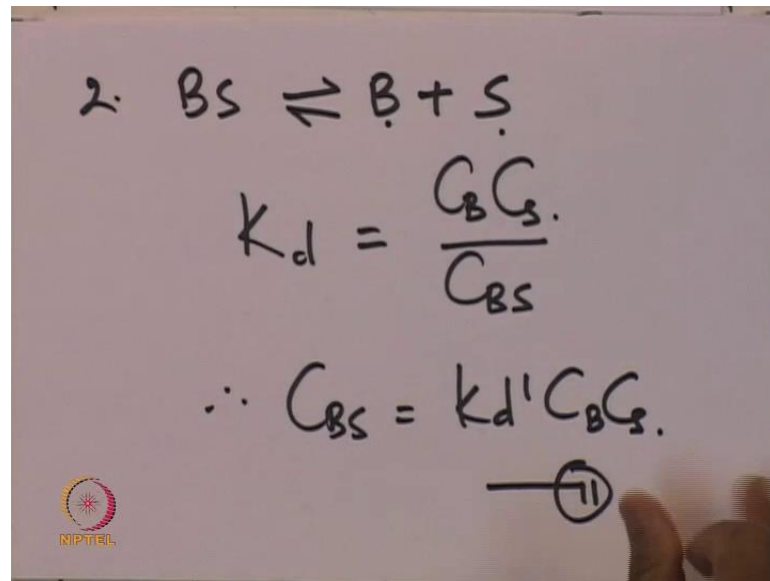 2. BS ⇌ B + S
K_d = C_B C_S. / C_BS
∴ C_BS = K_d' C_B C_S.
— 11
NPTEL